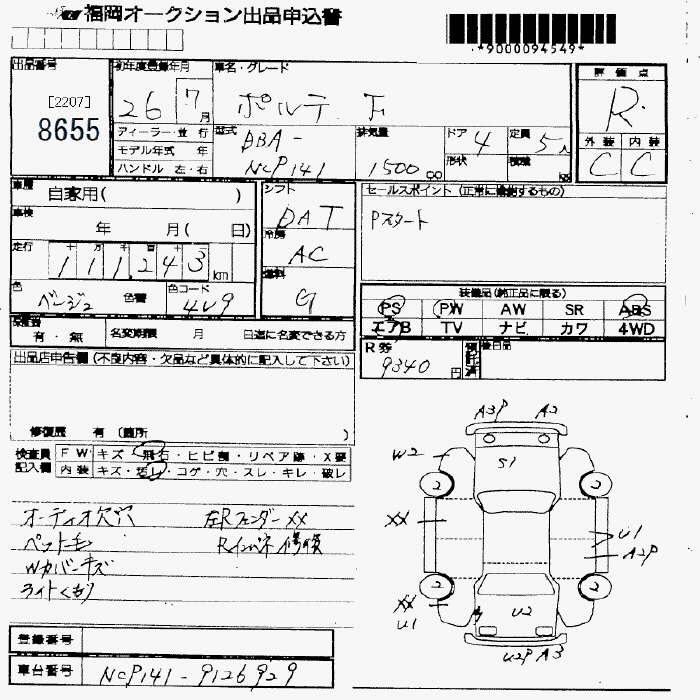 福岡オークション出品申込書
*9000094549*
出品番号
[2207]
8655
初年度登録年月
26 7月
ディーラー・並行
モデル年式 年
ハンドル 左・右
車名・グレード
ポルテ F
型式
DBA-
NCP141
排気量
1500 cc
ドア 4
形状
定員 5人
積載 kg
評価点
R
外装 内装
C C
車歴 自家用( )
車検 年 月( 日)
走行 十 万 千 百 十
111,243 km
色 ベージュ 色替
色コード 4U9
シフト
DAT
冷房
AC
燃料
G
セールスポイント (正常に機能するもの)
Pスタート
装備品(純正品に限る)
PS PW AW SR ABS
エアB TV ナビ カワ 4WD
有・無 名変期限 月 日迄に名変できる方
R券 9340円
預託済
後日品
出品店申告欄(不良内容・欠品など具体的に記入して下さい)
修復歴 有(箇所 )
検査員 FW キズ・飛石・ヒビ割・リペア跡・X要
記入欄 内装 キズ・汚レ・コゲ・穴・スレ・キレ・破レ
オーディオ欠穴 左Rフェンダー XX
ペット毛 Rインパネ修復
Wカバーキズ
ライトくもり
登録番号
車台番号 NCP141-9126929
A3P A3
W2 S1
2 2
XX U1
A2P
2 2
XX
U1 U2
U2P A3